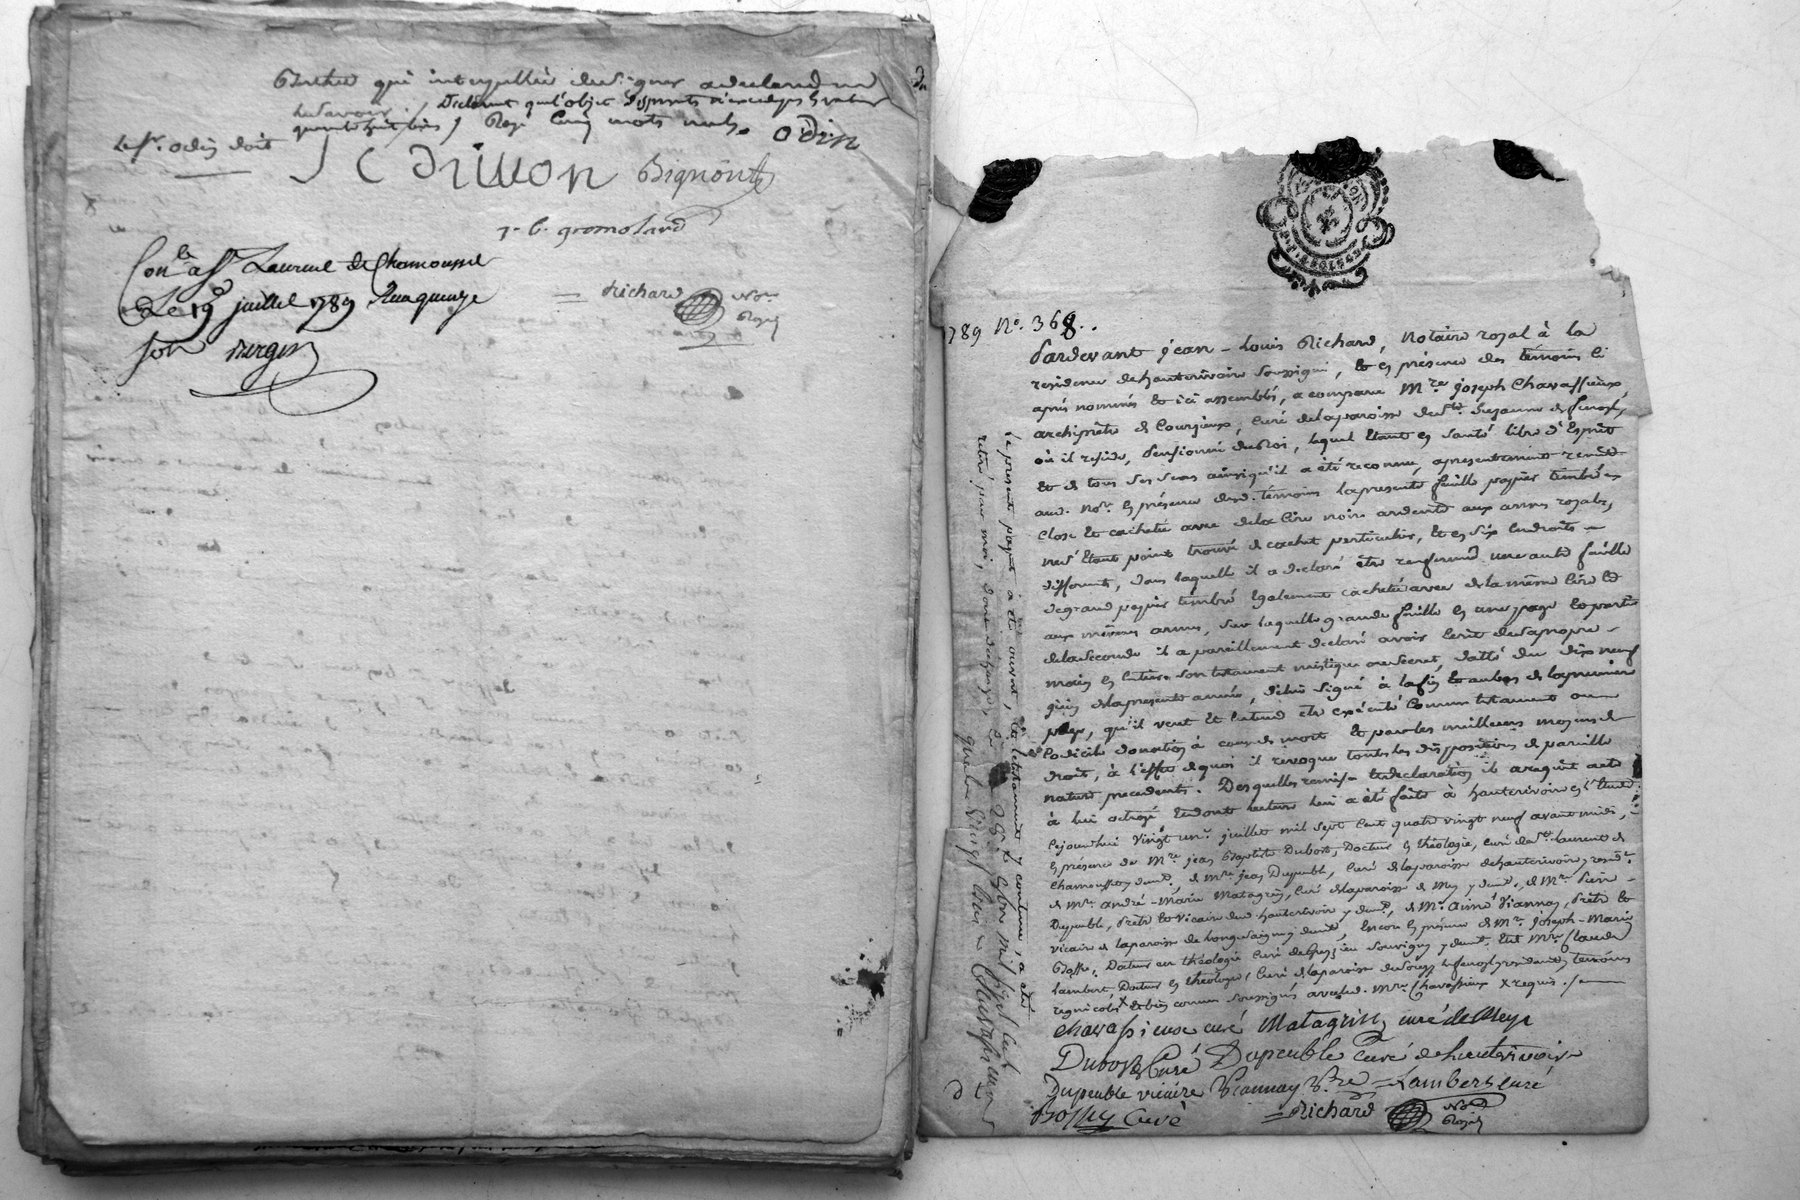 qui interpellé de signer a declaré ne
Declarant que l'objet
cinq mots nuls. odin
Le Sr. odin doit
Drivon Bignont
j. b. gromolard
Conlé a St. Laurent de Chamousset
Le 19 juillet 1789 Reçu quinze
sols
Richard Nore.
Royal
1789 No. 368..
Pardevant jean-Louis Richard, Notaire royal à la
residence de hauterivoire soussigné, et en présence des témoins ci
après nommés et ici assemblés, a comparu Mre. joseph Chavassieux,
archiprêtre de Courzieux, curé de la paroisse de Ste.
où il reside, pensionné du Roi, lequel étant en santé libre d'Esprit
et de tous ses sens ainsi qu'il a été reconnu, a presentement remis
aud. Nore. en présence desd. témoins la presente feuille papier timbré
close et cachetée avec de la cire noire ardente aux armes royales,
ne s'étant point trouvé de cachet particulier, et en six endroits
differents, dans laquelle il a declaré être renfermé une autre feuille
de grand papier timbré également cachetée avec de la même cire et
aux mêmes armes, sur laquelle grande feuille en une page et partie
de la seconde il a pareillement declaré avoir écrit de sa propre
main en entier son testament mistique ou secret, datté du dix neuf
juin de la presente année, de lui signé à la fin et au bas de la premiere
page, qu'il veut et entend être exécuté comme testament ou
codicile donation à cause de mort et par les meilleurs moyens de
droit, à l'effet de quoi il revoque toutes les dispositions de pareille
nature precedentes. Desquelles remise et declaration il a requit acte
à lui octroyé et dont lecture lui a été faite à hauterivoire en l'étude
cejourdhui vingt un. juillet mil sept cent quatre vingt neuf avant midi,
en présence de Mre jean Baptiste Dubost, Docteur en théologie, curé de St. laurent de
Chamousset y demt., de Mre jean Dupeuble, curé de la paroisse de hauterivoire y residt.
de Mre. andré-Marie Matagrin, curé de la paroisse de Meys y demt., de Mre. Pierre
Dupeuble, Prêtre et vicaire dud. hauterivoire y demt., de Mre. aimé Viannay, Prêtre et
vicaire de la paroisse de longessaigne y demt., encore en présence de Mre. joseph-Marie
Docteur en théologie curé de Brussieu y demt. et Mre. Claude
Lambert Docteur en théologie, curé de la paroisse de témoins
requis et bien connus soussignés avec led. Mre. Chavassieux x requis.
chavassieux curé Matagrin, curé de Meys
Dubost Curé Dupeuble curé de hauterivoire
Dupeuble vicaire Viannay Ptre Lambert curé
curé Richard Nore
Royal
Le present paquet a été ouvert, et le testament y contenu, a été
retiré par moi, dont decharge, ce
quatre vingt Chavassieux